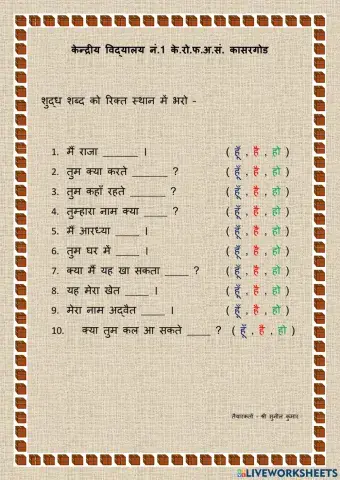 केन्द्रीय विद्यालय नं.1 के.रो.फ.अ.सं. कासरगोड
शुद्ध शब्द को रिक्त स्थान में भरो -
1. मैं राजा ______ । ( हूँ , है , हो )
2. तुम क्या करते ______ ? ( हूँ , है , हो )
3. तुम कहाँ रहते ______ ? ( हूँ , है , हो )
4. तुम्हारा नाम क्या ____ ? ( हूँ , है , हो )
5. मैं आरध्या ____ । ( हूँ , है , हो )
6. तुम घर में ____ । ( हूँ , है , हो )
7. क्या मैं यह खा सकता ____ ? ( हूँ , है , हो )
8. यह मेरा खेत ____ । ( हूँ , है , हो )
9. मेरा नाम अद्वैत ____ । ( हूँ , है , हो )
10. क्या तुम कल आ सकते ____ ? ( हूँ , है , हो )
तैयारकर्ता - श्री सुनील कुमार
LIVEWORKSHEETS